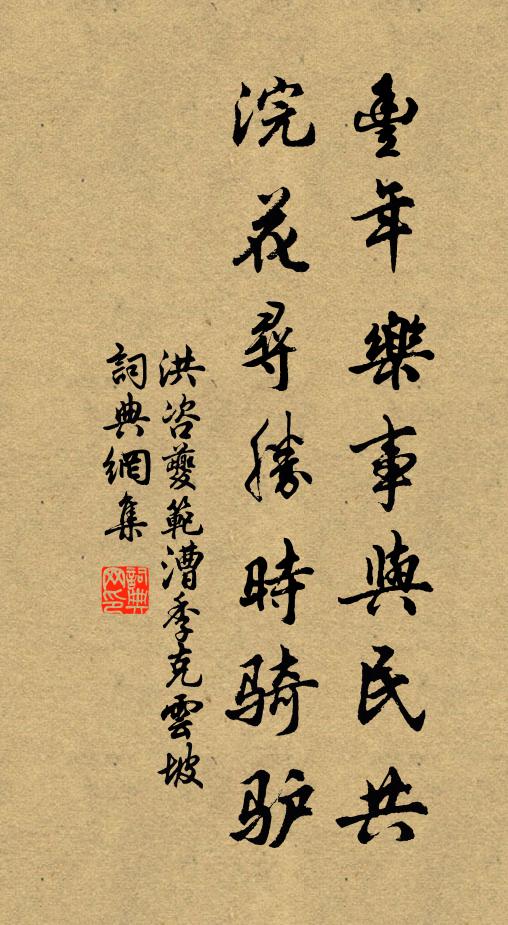 豐年樂事與民共
浣花尋勝時騎驴
洪咨夔範漕季克雲坡
詞典網集
詞典网印